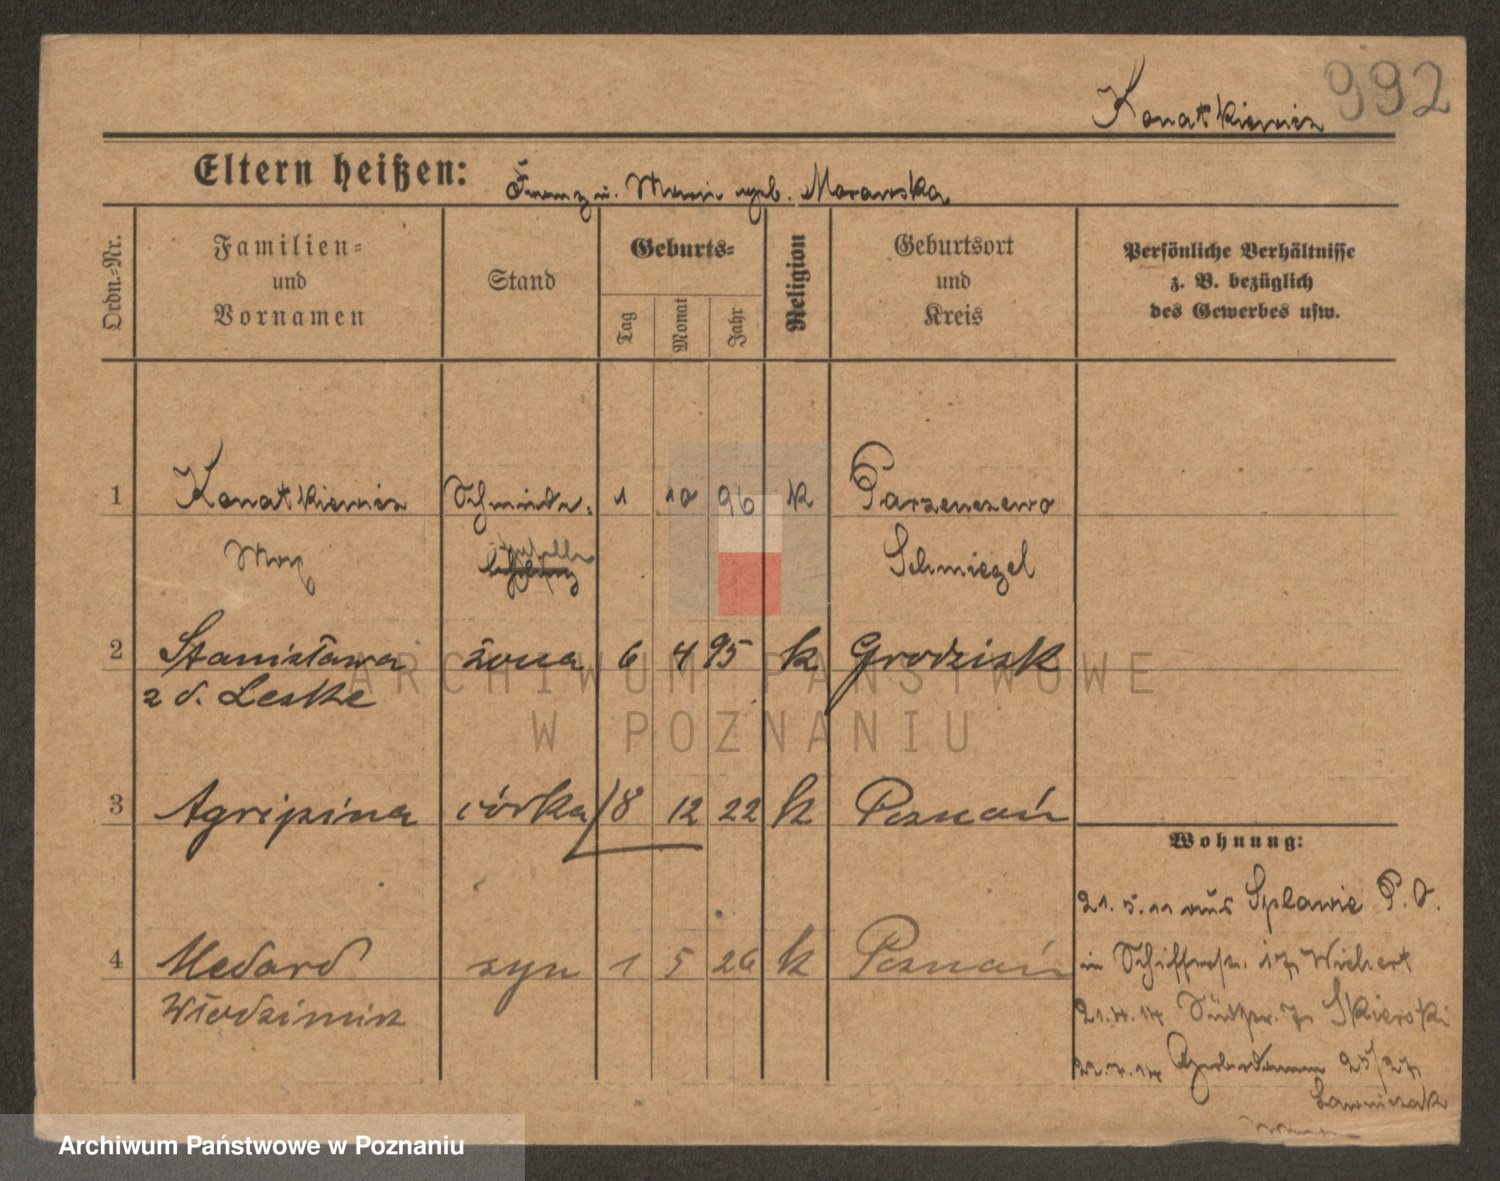 992
Konatkiewicz
Eltern heißen: Franz u. Marie geb. Morawska
Ordn.-Nr.
Familien-
und
Vornamen
Stand
Geburts-
Tag
Monat
Jahr
Religion
Geburtsort
und
Kreis
Persönliche Verhältnisse
z. B. bezüglich
des Gewerbes usw.
1 Konatkiewicz Schmiede- 1 10 96 k Parzenczewo
Max Schmiegel
2 Stanisława żona 6 4 95 k Grodzisk
z d. Leske
3 Agripina córka 18 12 22 k Poznań
Wohnung:
21.5.11 aus Splawie P.O.
4 Medard syn 1 5 26 k Poznań
in Schifferstr. 17 Wichert
Włodzimierz
21.4.14 Südstr. 7 Skierski
22.7.14 Gerberdamm 25/27
Lawniczak
ARCHIWUM PAŃSTWOWE
W POZNANIU
Archiwum Państwowe w Poznaniu